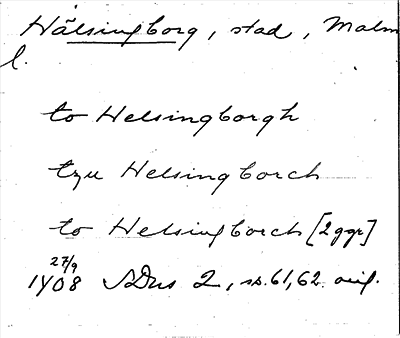 Hälsingborg, stad, Malm
l.
to Helsingborgh
tzu Helsingborch
to Helsingborch [2 ggr]
27/9
1408 SDns 2, sd. 61, 62. orig.